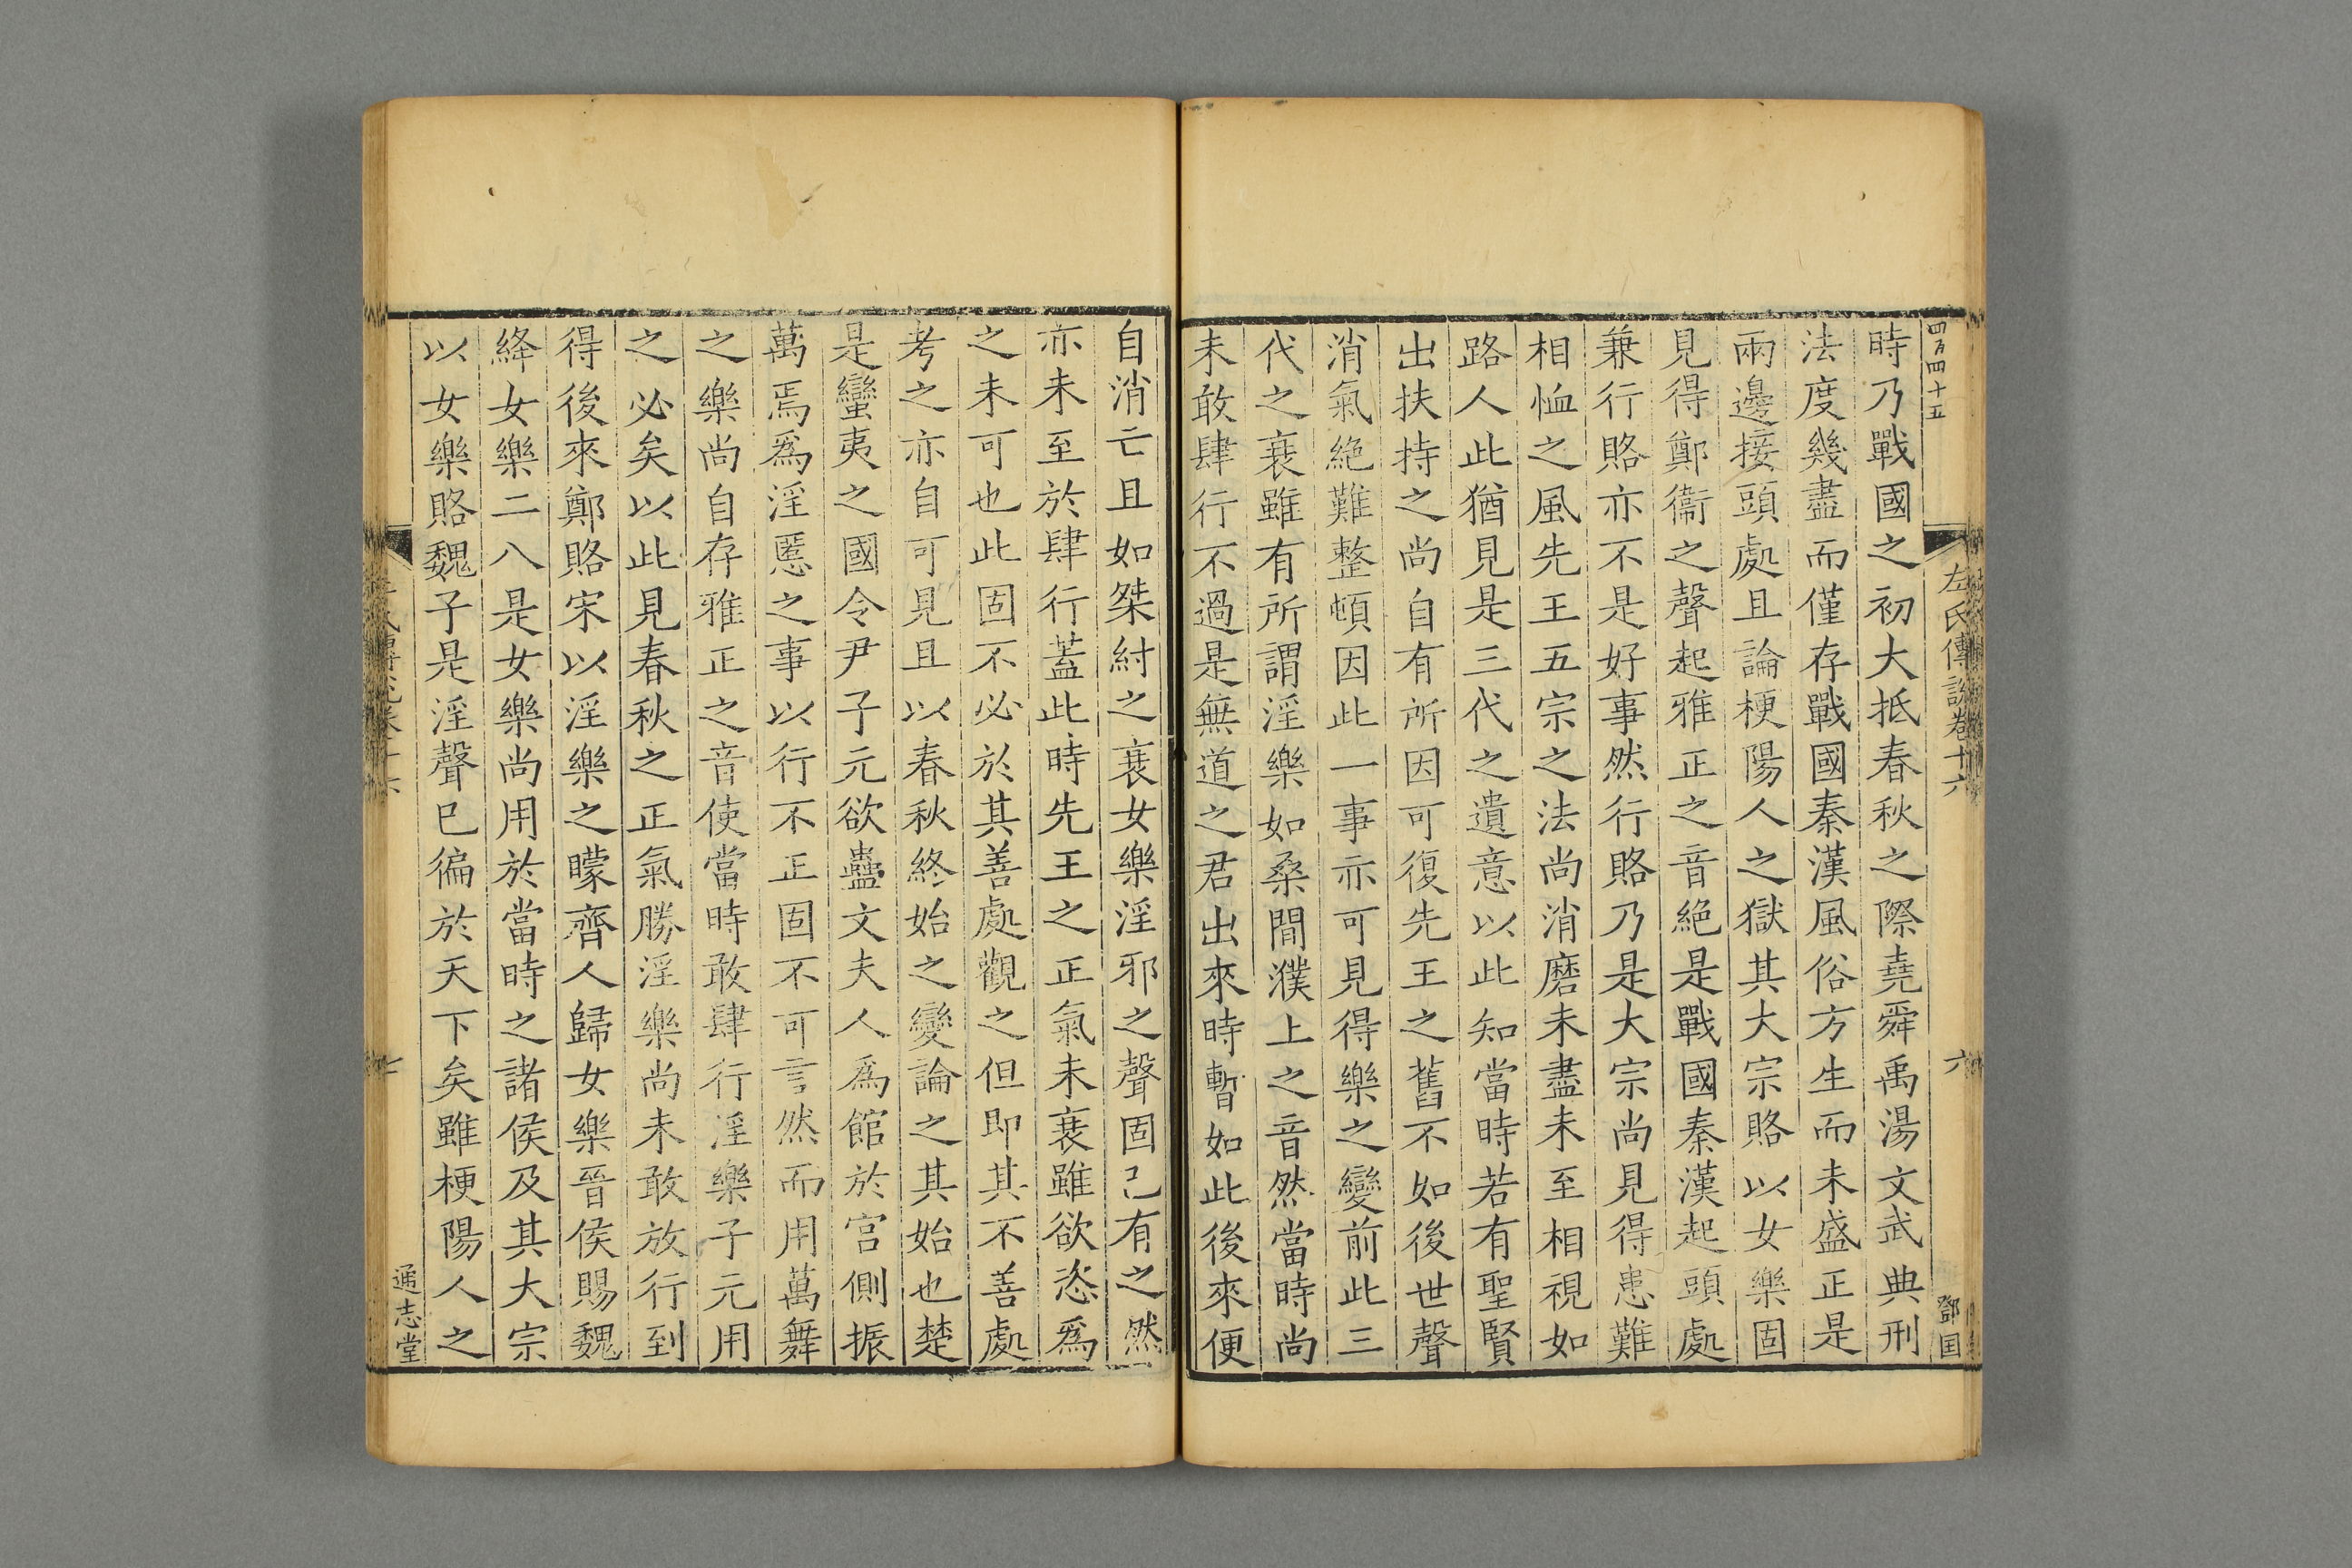 四百四十五
左氏傳說卷十六
六
鄧国
時乃戰國之初大抵春秋之際堯舜禹湯文武典刑
法度幾盡而僅存戰國秦漢風俗方生而未盛正是
兩邊接頭處且論梗陽人之獄其大宗賂以女樂固
見得鄭衞之聲起雅正之音絕是戰國秦漢起頭處
兼行賂亦不是好事然行賂乃是大宗尚見得患難
相恤之風先王五宗之法尚消磨未盡未至相視如
路人此猶見是三代之遺意以此知當時若有聖賢
出扶持之尚自有所因可復先王之舊不如後世聲
消氣絕難整頓因此一事亦可見得樂之變前此三
代之衰雖有所謂淫樂如桑間濮上之音然當時尚
未敢肆行不過是無道之君出來時暫如此後來便
自消亡且如桀紂之衰女樂淫邪之聲固已有之然
亦未至於肆行蓋此時先王之正氣未衰雖欲恣爲
之未可也此固不必於其善處觀之但即其不善處
考之亦自可見且以春秋終始之變論之其始也楚
是蠻夷之國令尹子元欲蠱文夫人爲館於宮側振
萬焉爲淫慝之事以行不正固不可言然而用萬舞
之樂尚自存雅正之音使當時敢肆行淫樂子元用
之必矣以此見春秋之正氣勝淫樂尚未敢放行到
得後來鄭賂宋以淫樂之矇齊人歸女樂晉侯賜魏
絳女樂二八是女樂尚用於當時之諸侯及其大宗
以女樂賂魏子是淫聲已徧於天下矣雖梗陽人之
通志堂